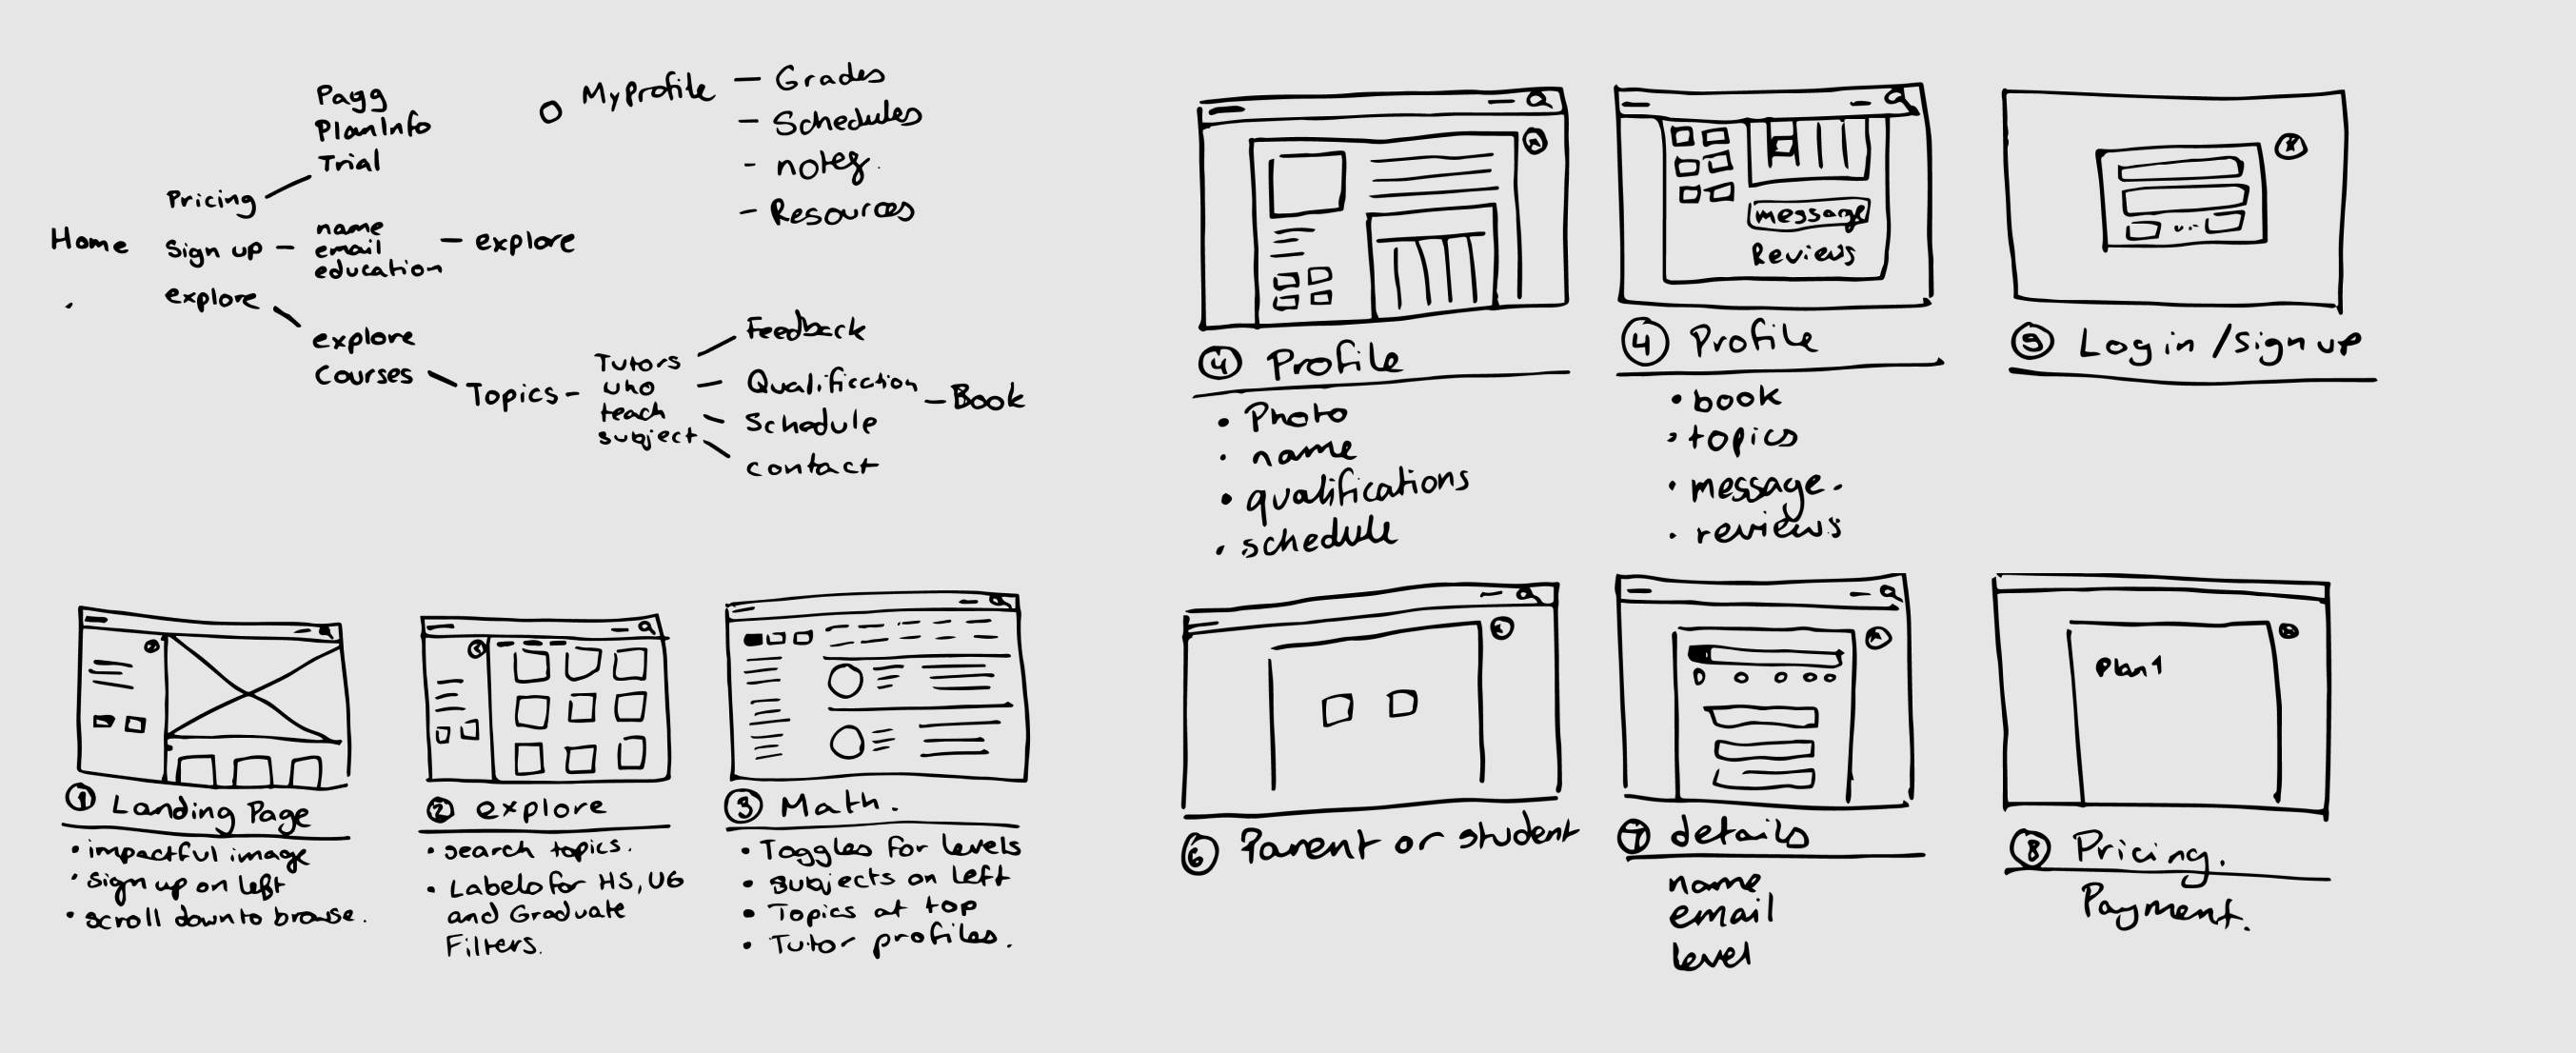 Pagg
PlanInfo
Trial
Pricing
Home
Sign up
name
email
education
explore
explore
explore
courses
Topics
Tutors
who
teach
subject
Feedback
Qualification
Schedule
contact
Book
My Profile
Grades
Schedules
notes.
Resources
① Landing Page
• impactful image
• sign up on left
• scroll down to browse.
② explore
• search topics.
• Labels for HS, UG
and Graduate
Filters.
③ Math.
• Toggles for levels
• subjects on left
• Topics at top
• Tutor profiles.
④ Profile
• Photo
• name
• qualifications
• schedule
message
Reviews
④ Profile
• book
• topics
• message.
• reviews
⑤ Log in / sign up
⑥ Parent or student
⑦ details
name
email
level
Plan 1
⑧ Pricing.
Payment.